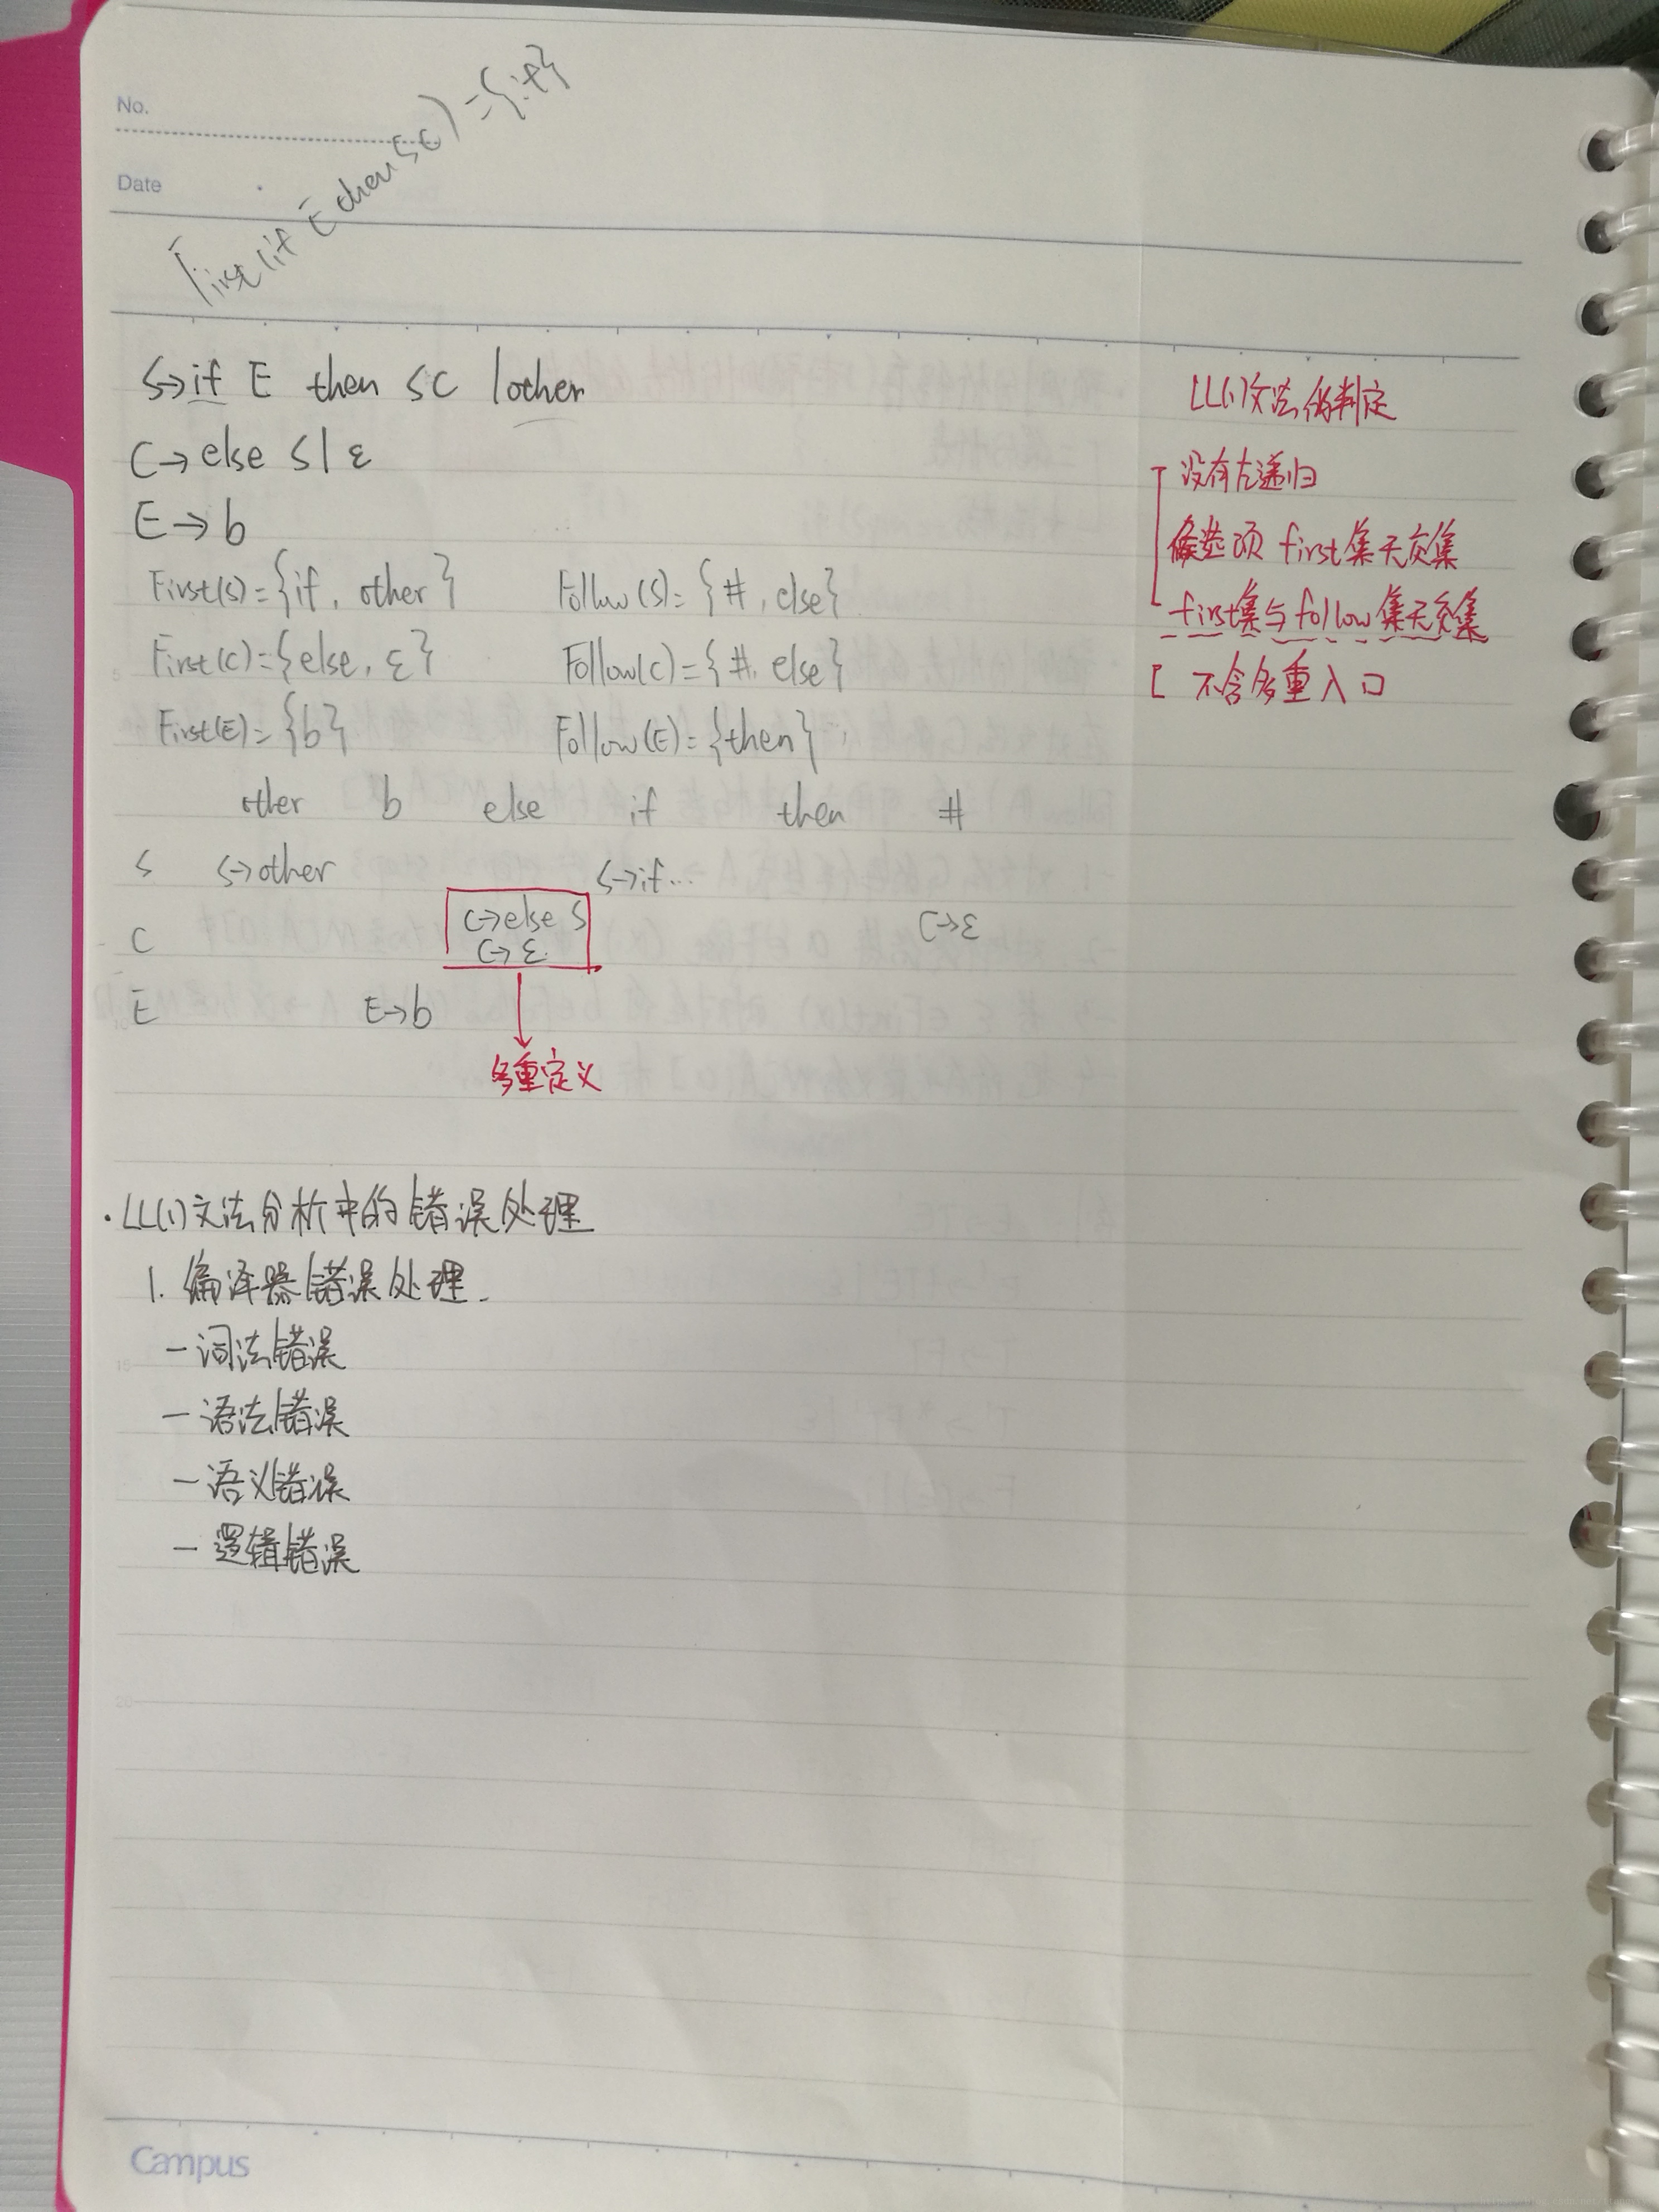 No.
Date
First(if E then SC) = {if}
S→if E then SC |other
C→else S|ε
E→b
First(S)={if, other} Follow(S)={#, else}
First(C)={else, ε} Follow(C)={#, else}
First(E)={b} Follow(E)={then}
other b else if then #
S S→other S→if...
C C→else S C→ε
C→ε
E E→b
多重定义
LL(1)文法的判定
没有左递归
候选项 first集无交集
first集与follow集无交集
不含多重入口
·LL(1)文法分析中的错误处理
1. 编译器错误处理.
-词法错误
-语法错误
-语义错误
-逻辑错误
Campus